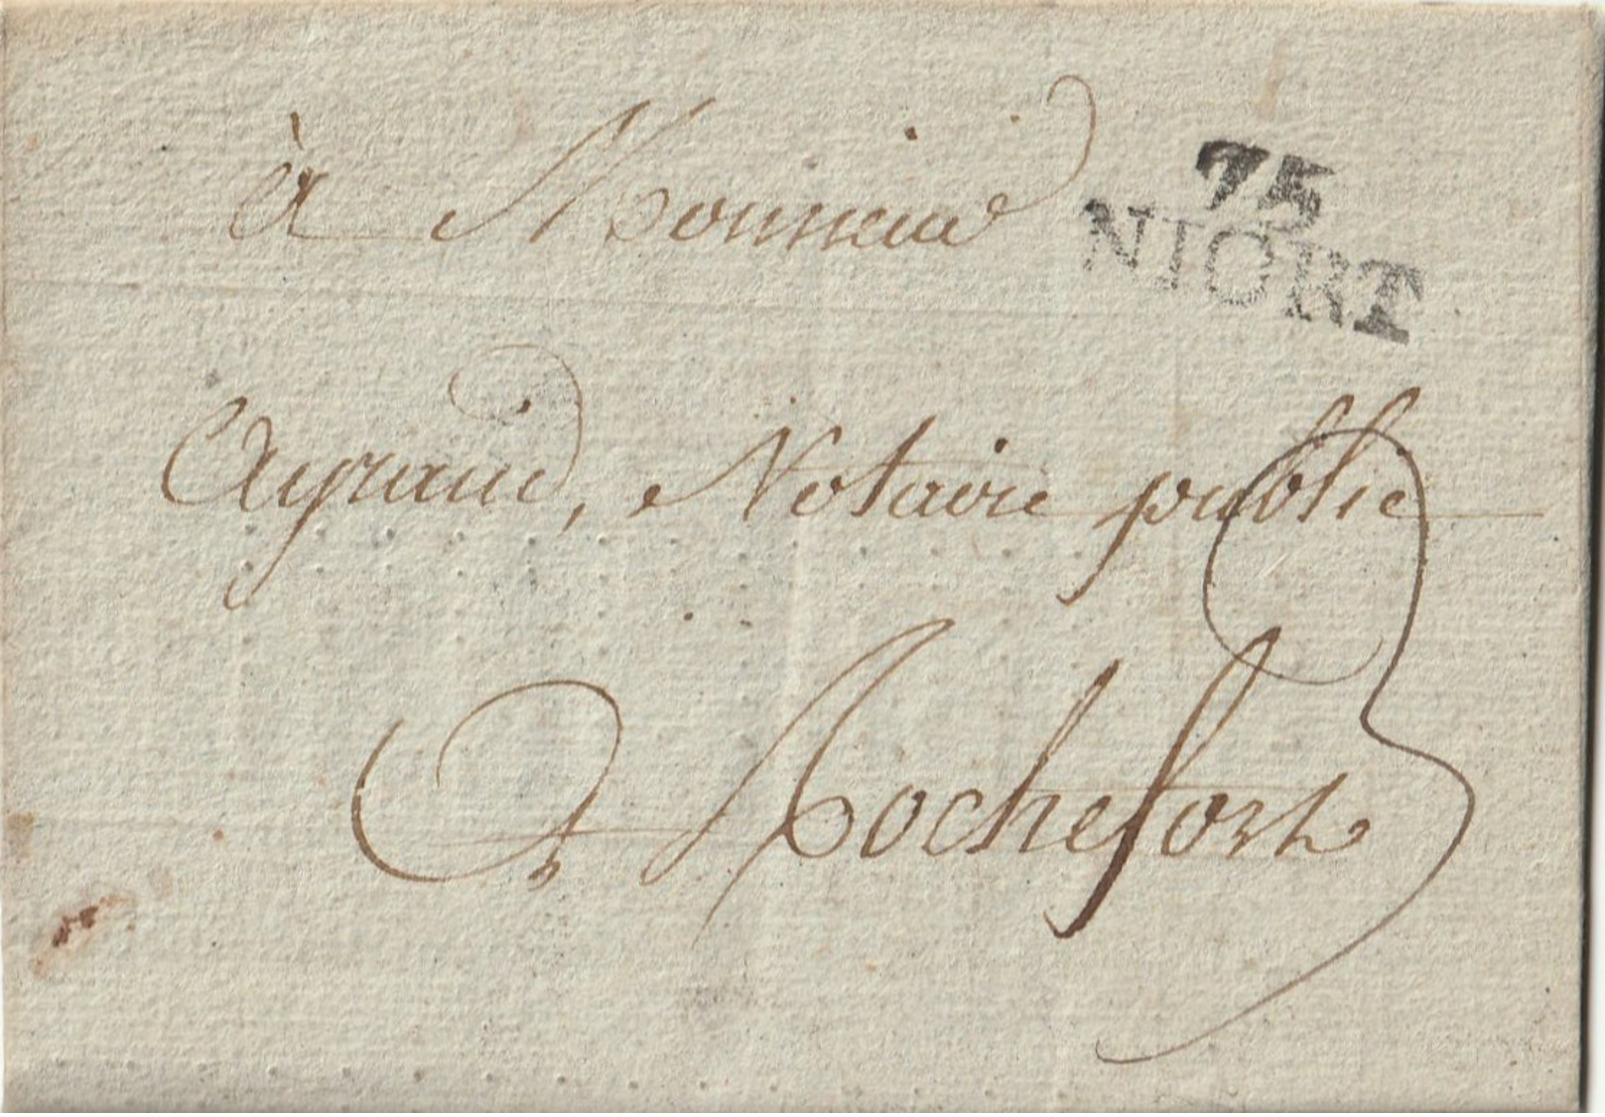 à Monsieur
75
NIORT
Ayraud, Notaire public
3
à Rochefort